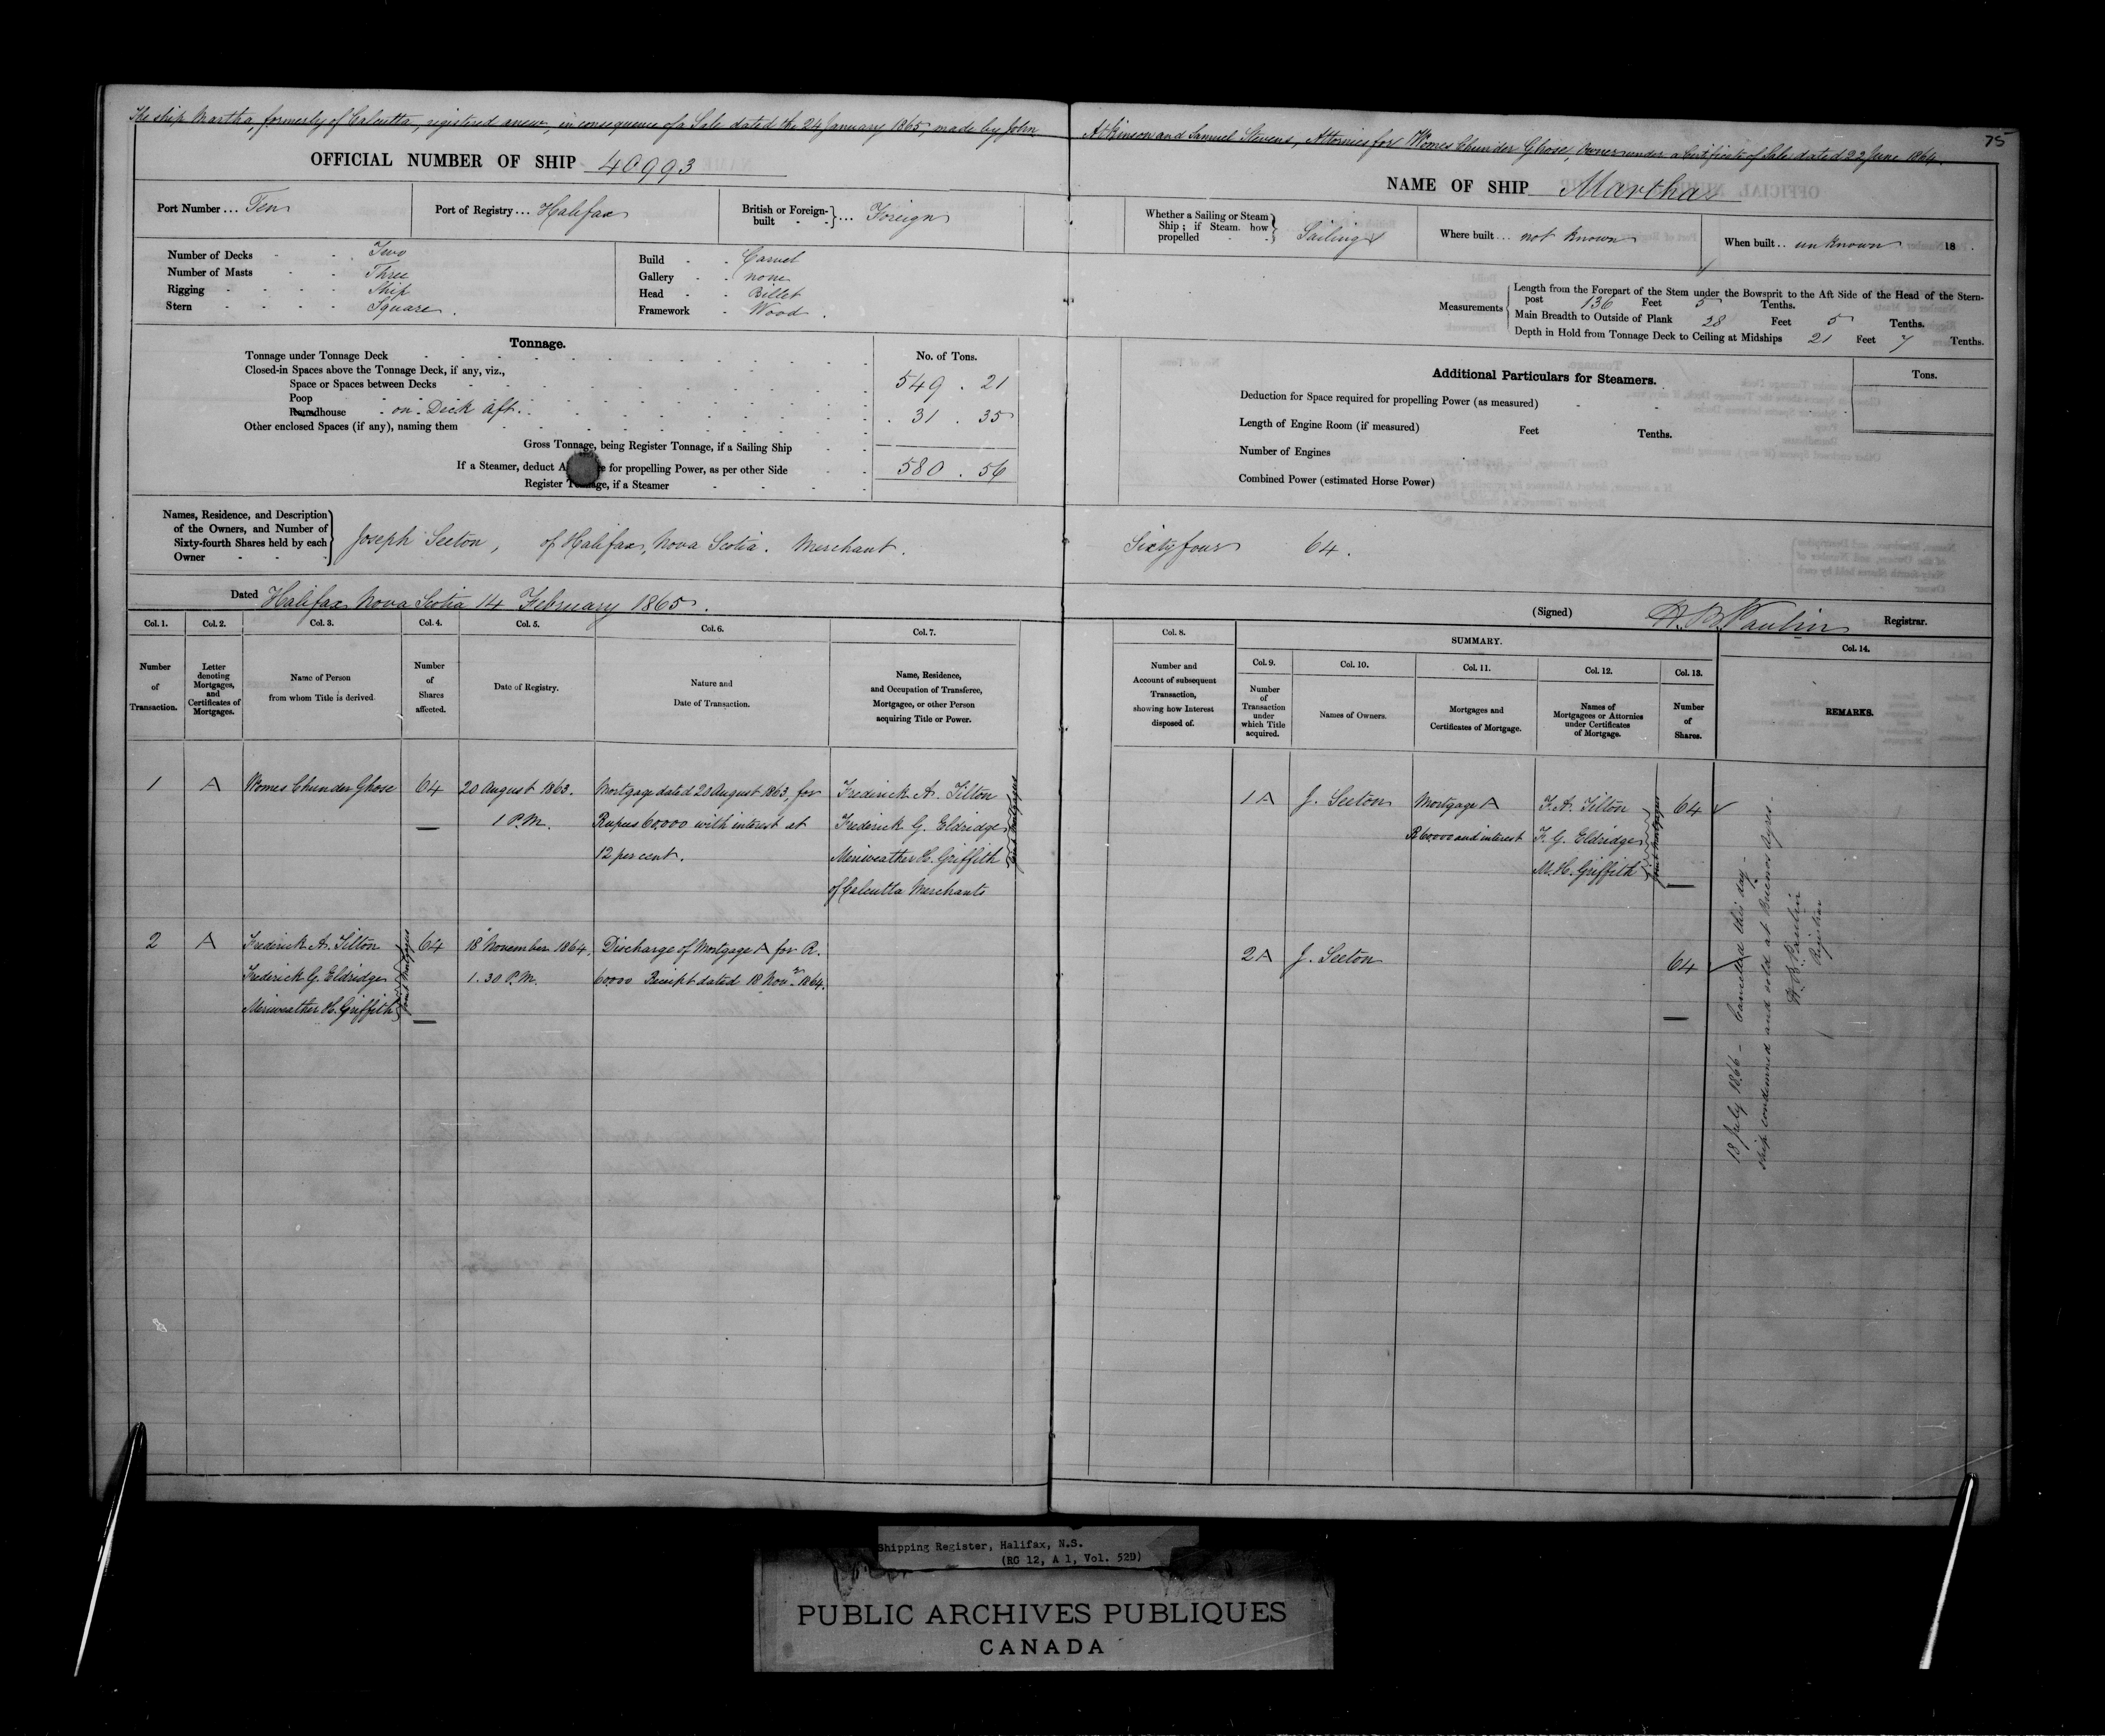 75
The ship Martha, formerly of Calcutta, registered anew, in consequence of a Sale dated the 24 January 1865, made by John Atkinson and Samuel Stevens, Attornies for Womes Chunder Ghose, Owner under a Certificate of Sale dated 22 June 1864.
OFFICIAL NUMBER OF SHIP 40993
NAME OF SHIP Martha
Port Number ... Ten
Port of Registry ... Halifax
British or Foreign-built ... Foreign
Whether a Sailing or Steam Ship; if Steam, how propelled Sailing
Where built ... not known
When built .. unknown 18 .
Number of Decks Two
Number of Masts Three
Rigging Ship
Stern Square.
Build Carvel
Gallery none
Head Billet
Framework Wood.
Measurements
Length from the Forepart of the Stem under the Bowsprit to the Aft Side of the Head of the Stern-
post 136 Feet 5 Tenths.
Main Breadth to Outside of Plank 28 Feet 5 Tenths.
Depth in Hold from Tonnage Deck to Ceiling at Midships 21 Feet 7 Tenths.
Tonnage.
No. of Tons.
Tonnage under Tonnage Deck
Closed-in Spaces above the Tonnage Deck, if any, viz.,
Space or Spaces between Decks 549 . 21
Poop
Roundhouse on Deck aft. 31 . 35
Other enclosed Spaces (if any), naming them
Gross Tonnage, being Register Tonnage, if a Sailing Ship
If a Steamer, deduct A e for propelling Power, as per other Side 580 . 56
Register Tonnage, if a Steamer
Additional Particulars for Steamers.
Tons.
Deduction for Space required for propelling Power (as measured)
Length of Engine Room (if measured) Feet Tenths.
Number of Engines
Combined Power (estimated Horse Power)
Names, Residence, and Description
of the Owners, and Number of
Sixty-fourth Shares held by each
Owner
Joseph Seeton, of Halifax, Nova Scotia. Merchant. Sixty four 64.
Dated Halifax Nova Scotia 14 February 1865.
(Signed) H. B. Paulin Registrar.
Col. 1.
Number
of
Transaction.
Col. 2.
Letter
denoting
Mortgages,
and
Certificates of
Mortgages.
Col. 3.
Name of Person
from whom Title is derived.
Col. 4.
Number
of
Shares
affected.
Col. 5.
Date of Registry.
Col. 6.
Nature and
Date of Transaction.
Col. 7.
Name, Residence,
and Occupation of Transferee,
Mortgagee, or other Person
acquiring Title or Power.
Col. 8.
Number and
Account of subsequent
Transaction,
showing how Interest
disposed of.
SUMMARY.
Col. 9.
Number
of
Transaction
under
which Title
acquired.
Col. 10.
Names of Owners.
Col. 11.
Mortgages and
Certificates of Mortgage.
Col. 12.
Names of
Mortgagees or Attornies
under Certificates
of Mortgage.
Col. 13.
Number
of
Shares.
Col. 14.
REMARKS.
1 A Womes Chunder Ghose 64 20 August 1863. Mortgage dated 20 August 1863, for Frederick A. Tilton
1 P.M. Rupees 60,000 with interest at Frederick G. Eldridge
12 per cent. Meriweather H. Griffith
of Calcutta Merchants
Joint Mortgagees
1 A J. Seeton Mortgage A F. A. Tilton 64
R 60000 and interest F. G. Eldridge
M. H. Griffith
Joint Mortgagees
2 A Frederick A. Tilton 64 18 November 1864, Discharge of Mortgage A for R.
Frederick G. Eldridge 1.30 P.M. 60000 Receipt dated 18 Novr. 1864.
Meriweather H. Griffith
Joint Mortgagees
2 A J. Seeton 64
18 July 1866 - Cancelled this day -
Ship condemned and sold at Buenos Ayres.
H. B. Paulin
Registrar
Shipping Register, Halifax, N.S.
(RG 12, A 1, Vol. 529)
PUBLIC ARCHIVES PUBLIQUES
CANADA